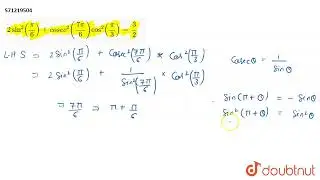 571219504
2 sin²(π/6) + cosec²(7π/6) cos²(π/3) = 3/2
L H S ⇒ 2 Sin²(π/6) + Cosec²(7π/6) * Cos²(π/3)
Cosecθ = 1/Sinθ
⇒ 2 Sin²(π/6) + 1/Sin²(7π/6) * Cos²(π/3)
⇒ 7π/6 ⇒ π + π/6
Sin(π+θ) = - Sinθ
Sin²(π+θ) = Sin²θ
doubtnut